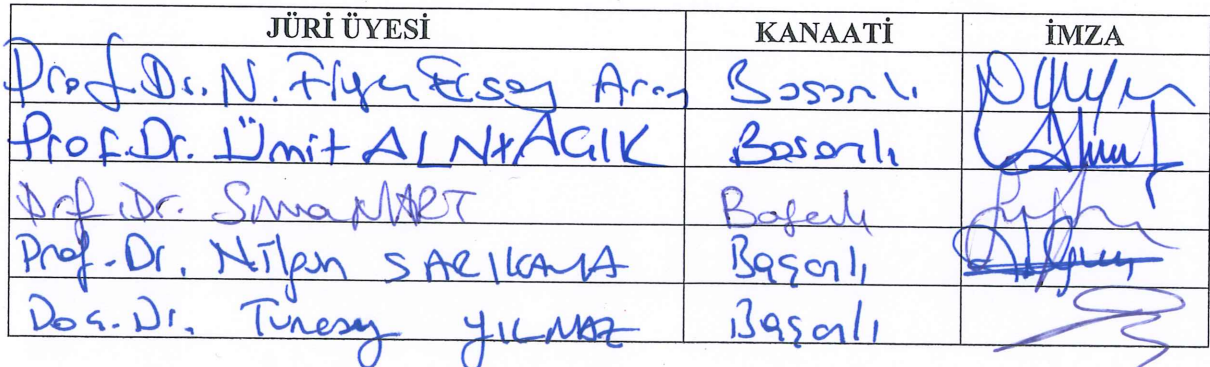 JÜRİ ÜYESİ KANAATİ İMZA
Prof. Dr. N. Ersoy Başarılı
Prof. Dr. Ümit ALNIAÇIK Başarılı
Prof. Dr. MERT Başarılı
Prof. Dr. Nilgün SARIKAYA Başarılı
Doç. Dr. Tuncay YILMAZ Başarılı